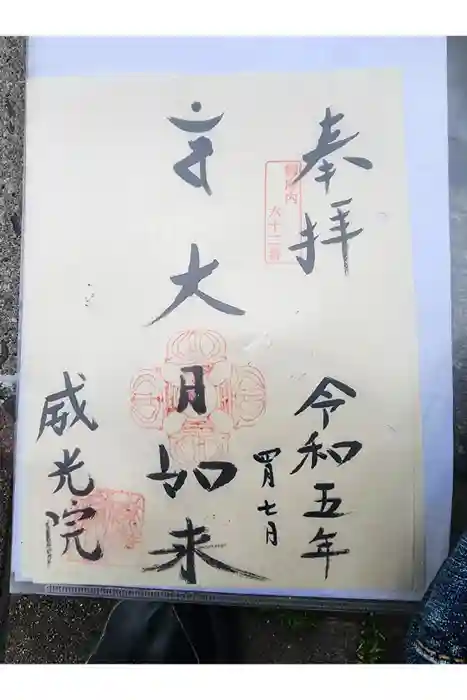 奉拝
御府内
六十二番
令和五年
四月七日
大日如来
威光院